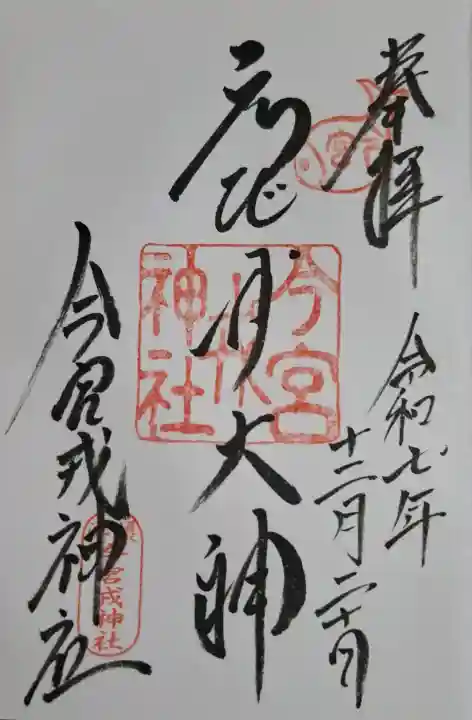 奉拝
令和七年
十二月二十日
大神
今宮戎神社
今宮戎神社
今宮戎神社